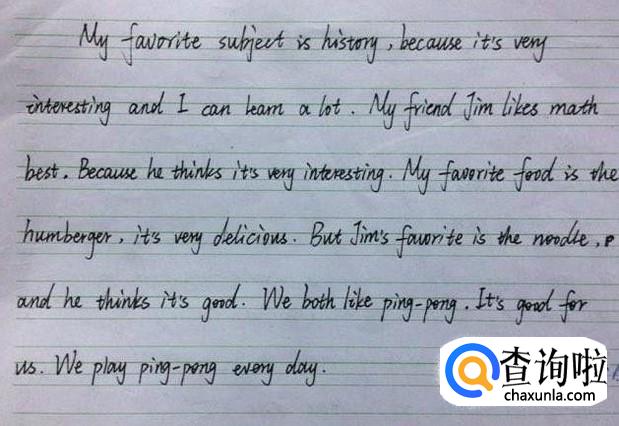 My favorite subject is history, because it's very
interesting and I can learn a lot. My friend Jim likes math
best. Because he thinks it's very interesting. My favorite food is the
humberger, it's very delicious. But Jim's favorite is the noodle,
and he thinks it's good. We both like ping-pong. It's good for
us. We play ping-pong every day.
查询啦
chaxunla.com